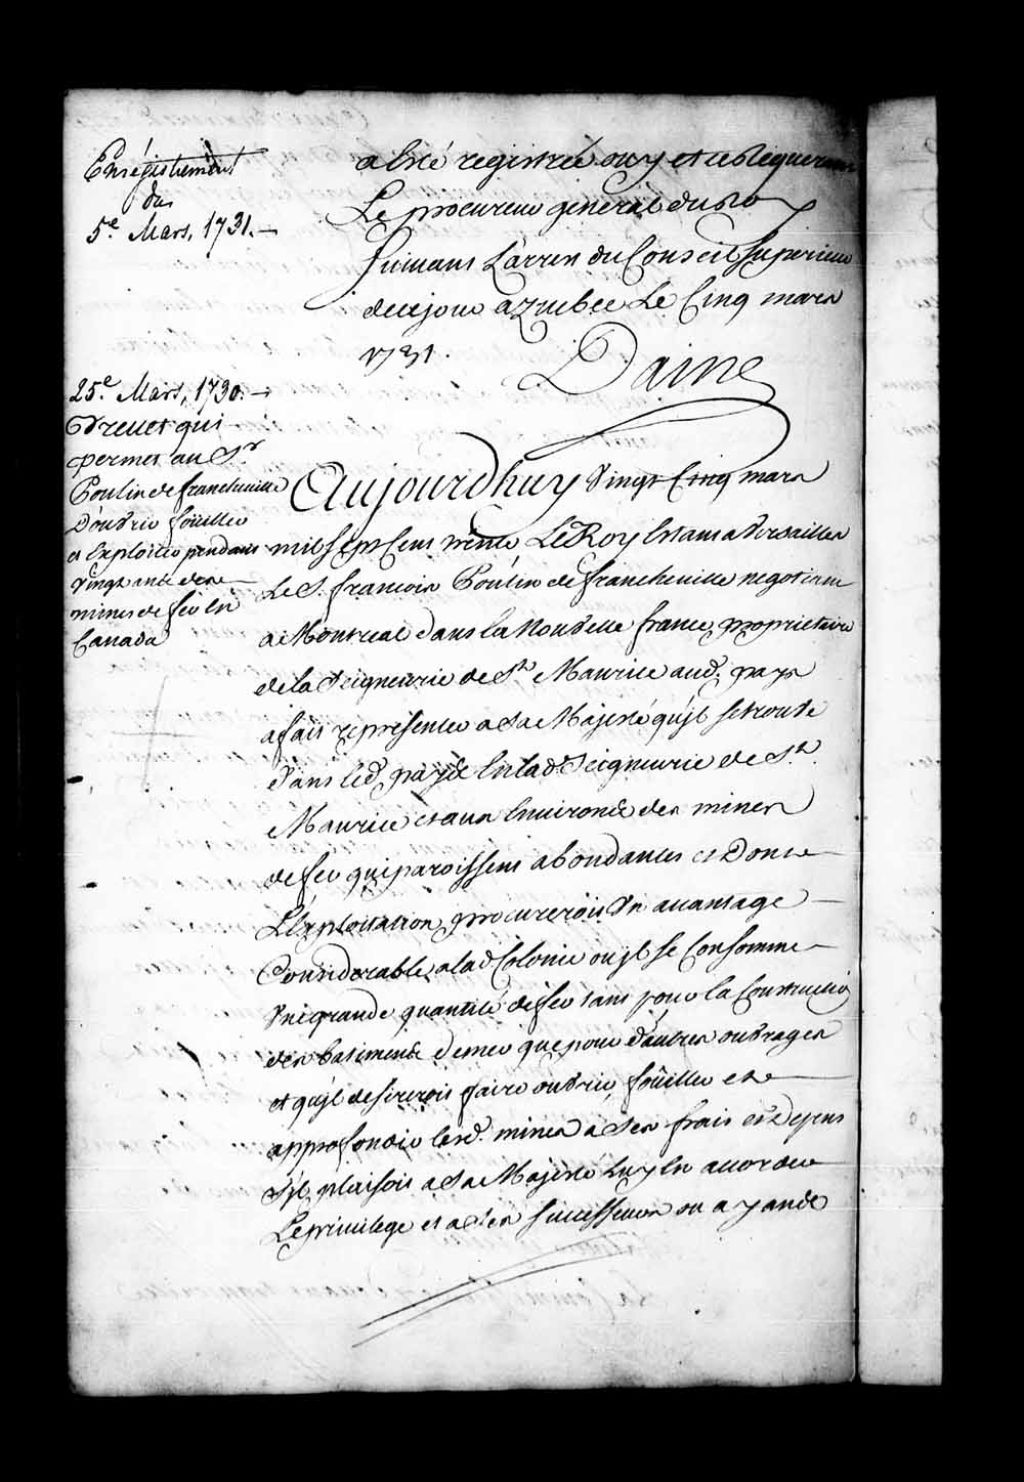 Enrégistrement
du
5e. Mars, 1731.—
a Esté registrée ouy et ce Requerant
Le procureur general du Roy
suivant L'arrest du Conseil superieur
de ce jour a quebec Le Cinq mars
1731.
Daine
25e. Mars, 1730.—
Brevet qui
permet au Sr
Poulin de francheville
D'ouvrir foüiller
et Exploiter pendant
Vingt ans des
mines de fer En
Canada
Aujourdhuy Vingt Cinq mars
mil sept Cent trente, Le Roy Estant a Versailles
Le S. francois Poulin de francheville negotiant
a Montreal dans la Nouvelle france, proprietaire
de la Seigneurie de St Maurice aud. pays
a fait representer a Sa Majesté qu'jl se trouve
dans led. pays Et lad. Seigneurie de St.
Maurice et aux Environs des mines
de fer qui paroissent abondantes et Dont
L'Exploitation procureroit Un avantage
Considerable a lad. Colonie ou jl se Consomme
Une grande quantité de fer tant pour la Construction
des batiments de mer que pour d'autres ouvrages
et qu'jl desireroit faire ouvrir, foüiller et
approfondir lesd. mines a ses frais et Depens
s'jl plaisoit a Sa Majesté Luy En accorder
Le privilege et a ses successeurs ou ayands